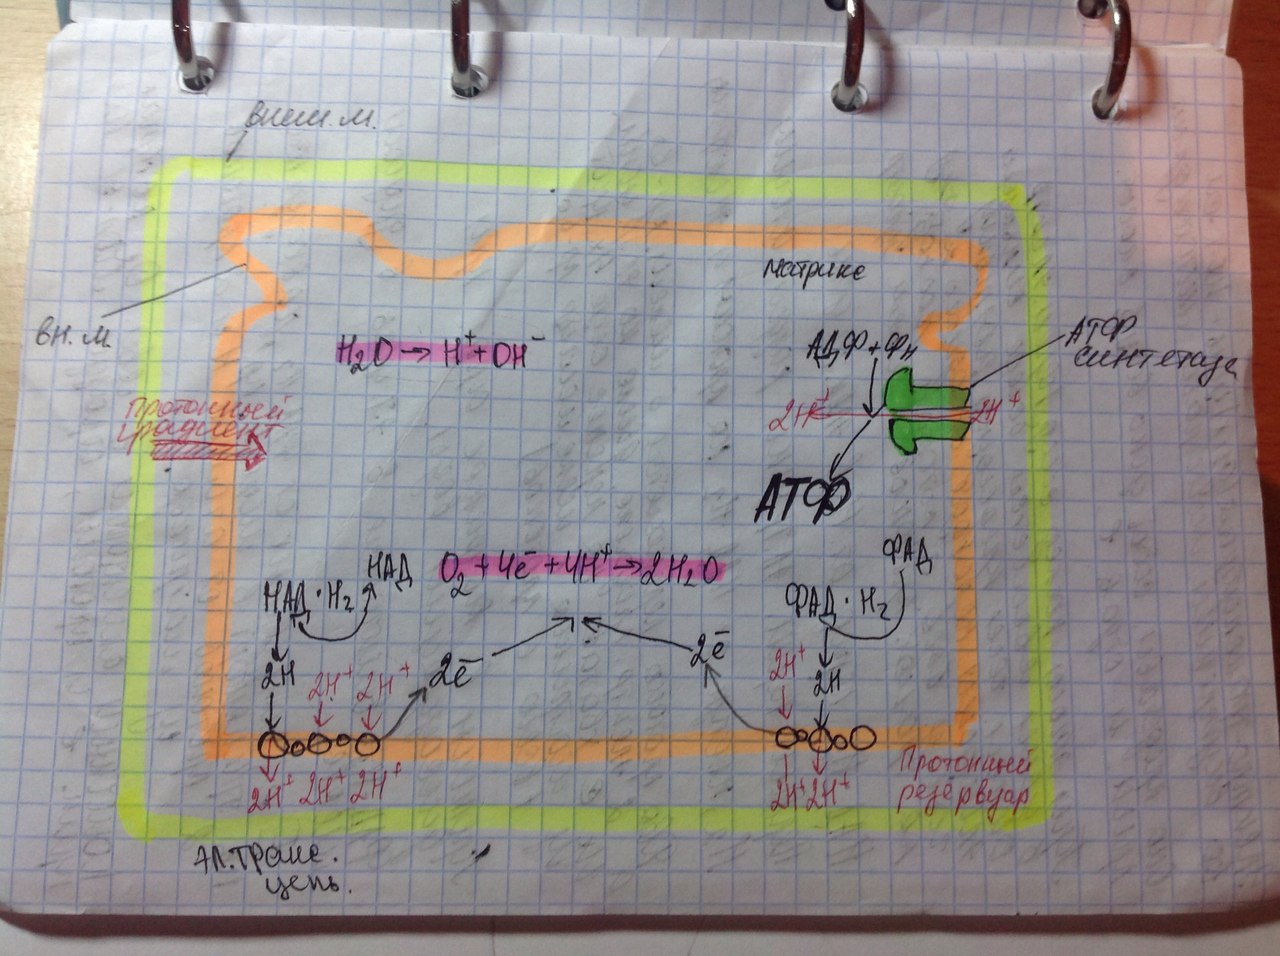 внеш. м.
вн. м.
матрикс
H₂O → H⁺ + OH⁻
АДФ + Фн
АТФ
синтетаза
Протонный
градиент
2H⁺
2H⁺
АТФ
НАД
O₂ + 4e⁻ + 4H⁺ → 2H₂O
ФАД
НАД·H₂
ФАД·H₂
2H
2H⁺
2H⁺
2e⁻
2e⁻
2H⁺
2H
2H⁺ 2H⁺ 2H⁺
2H⁺ 2H⁺
Протонный
резервуар
эл. транс.
цепь.